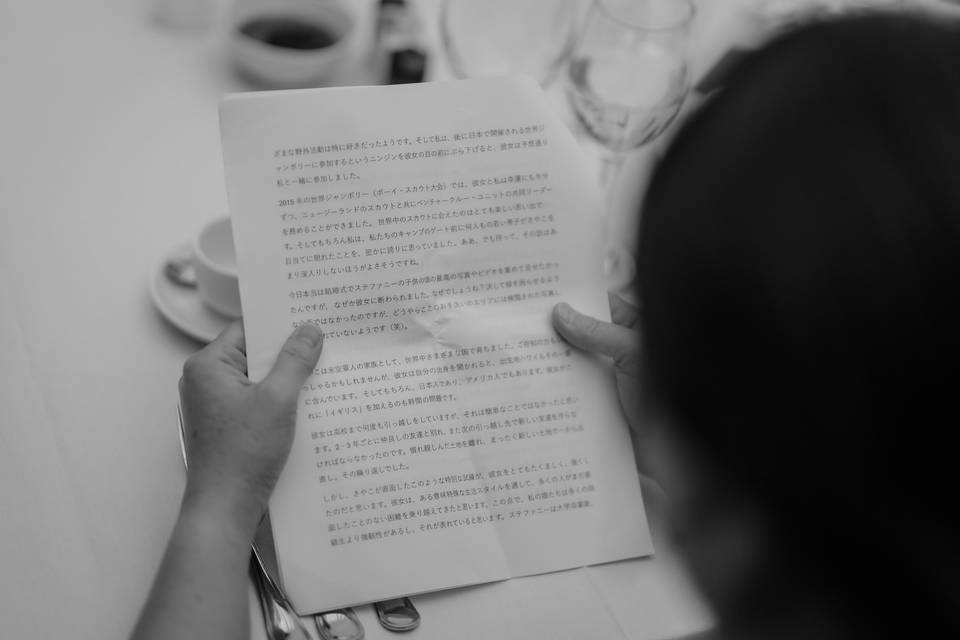 ざまな野外活動は特に好きだったようです。そして私は、後に日本で開催される世界ジ
ャンボリーに参加するというニンジンを彼女の目の前にぶら下げると、彼女は予想通り
私と一緒に参加しました。
2015 年の世界ジャンボリー（ボーイ・スカウト大会）では、彼女と私は幸運にも半分
ずつ、ニュージーランドのスカウトと共にベンチャークルー・ユニットの共同リーダー
を務めることができました。世界中のスカウトに会えたのはとても楽しい思い出で
す。そしてもちろん私は、私たちのキャンプのゲート前に何人もの若い男子がさやこを
目当てに現れたことを、密かに誇りに思っていました。ああ、でも待って、その話はあ
まり深入りしないほうがよさそうですね。
今日本当は結婚式でステファニーの子供の頃の最高の写真やビデオを集めて見せたかっ
たんですが、なぜか彼女に断わられました。なぜでしょうね？決して彼を困らせるよう
ではなかったのですが、どうやらここのお手洗いのエリアには検閲された写真し
れていないようです（笑）。
こは米空軍人の家族として、世界中さまざまな国で育ちました。ご存知の方も
っしゃるかもしれませんが、彼女は自分の出身を聞かれると、出生地ハワイもその一部
に含んでいます。そしてもちろん、日本人であり、アメリカ人でもあります。彼女がこ
れに「イギリス」を加えるのも時間の問題です。
彼女は高校まで何度も引っ越しをしていますが、それは簡単なことではなかったと思い
ます。2~3 年ごとに仲良しの友達と別れ、また次の引っ越し先で新しい友達を作らな
ければならなかったのです。慣れ親しんだ土地を離れ、まったく新しい土地で一から出
直し。その繰り返しでした。
しかし、さやこが直面したこのような特別な試練が、彼女をとてもたくましく、強くし
たのだと思います。彼女は、ある意味特殊な生活スタイルを通して、多くの人がまだ直
面したことのない困難を乗り越えてきたと思います。この点で、私の娘たちは多くの同
級生より強靭性があるし、それが表れていると思います。ステファニーは大学の家庭、